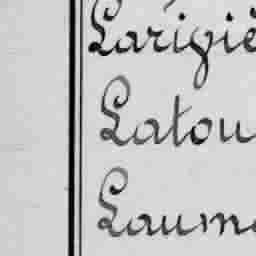 Larigiè
Latou
Laume